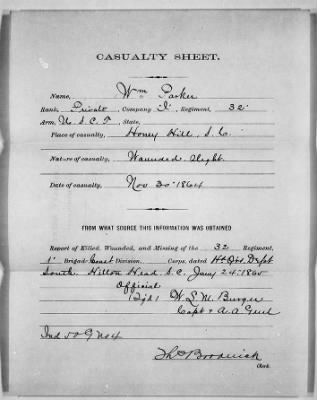 CASUALTY SHEET.
Name, Wm Parker
Rank, Private Company "I", Regiment, 32"
Arm, U.S.C.T State,
Place of casualty, Honey Hill, S.C.
Nature of casualty, Wounded. Slight.
Date of casualty, Nov 30" 1864
FROM WHAT SOURCE THIS INFORMATION WAS OBTAINED
Report of Killed, Wounded, and Missing of the 32 Regiment,
1" Brigade Coast Division, Corps, dated Hd Qrs Dept
South. Hilton Head S.C. Jany 24" 1865
Official
(Sgd) W.L.M. Burger
Capt & A.A. Genl
Theo Brodrick
Clerk.